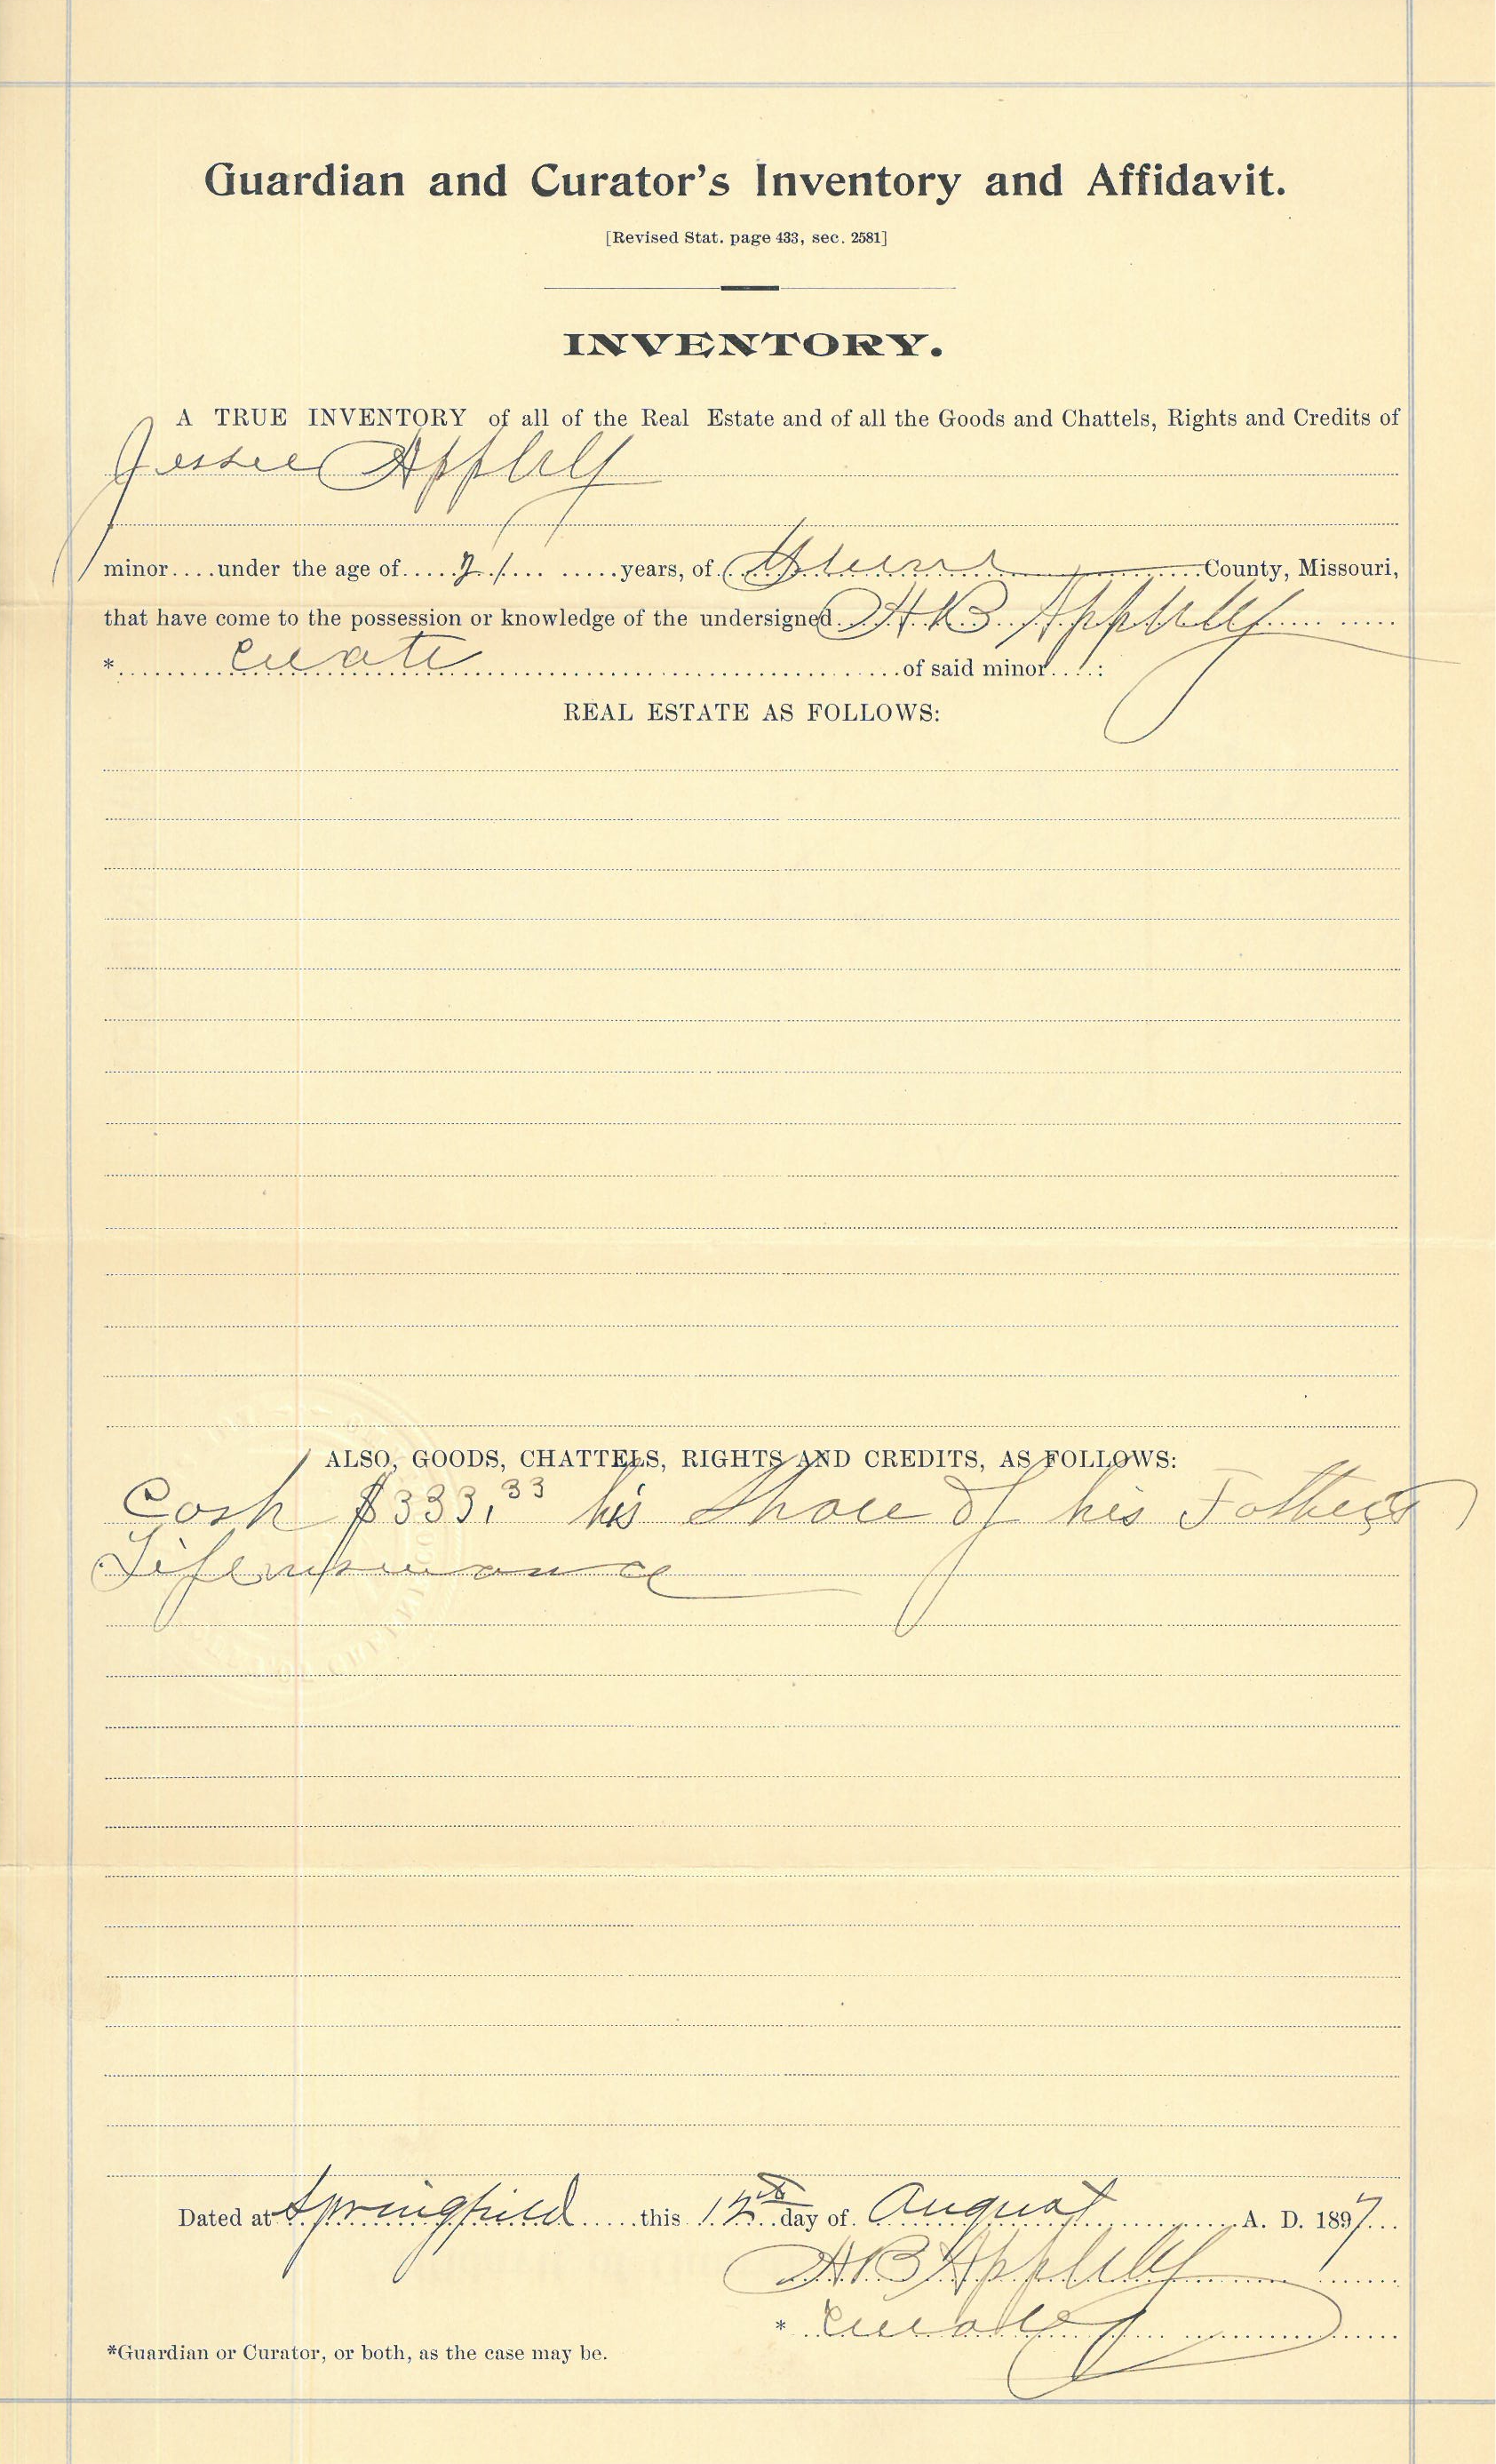 Guardian and Curator's Inventory and Affidavit.
[Revised Stat. page 433, sec. 2581]
INVENTORY.
A TRUE INVENTORY of all of the Real Estate and of all the Goods and Chattels, Rights and Credits of
Jessee Appleby
minor....under the age of.....21........years, of Greene County, Missouri,
that have come to the possession or knowledge of the undersigned H B Appleby
* Curator of said minor....:
REAL ESTATE AS FOLLOWS:
ALSO, GOODS, CHATTELS, RIGHTS AND CREDITS, AS FOLLOWS:
Cash $333.33 his Share of his Fathers
Life insurance
Dated at Springfield this 12th day of August A. D. 1897
H B Appleby
* Curator
*Guardian or Curator, or both, as the case may be.